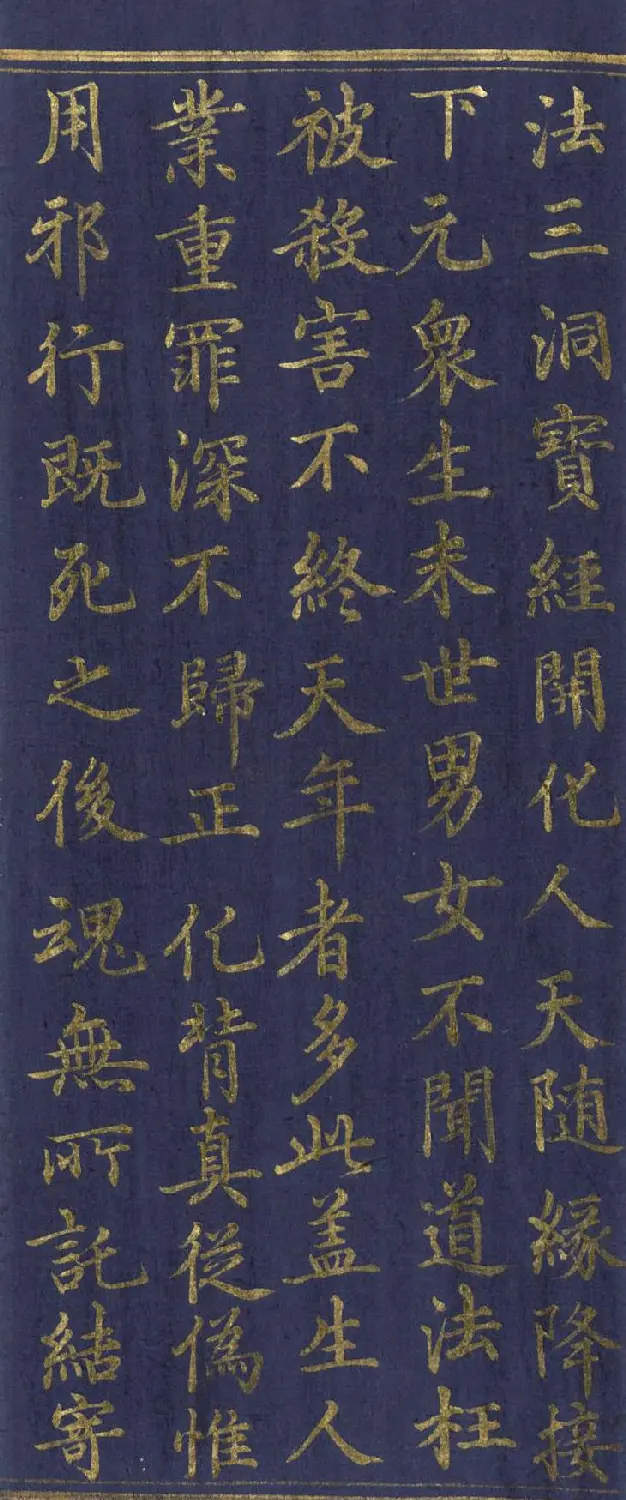 法三洞寳經開化人天随緣降接
下元衆生末世男女不聞道法枉
被殺害不終天年者多此盖生人
業重罪深不歸正化背真從偽惟
用邪行既死之後魂無所託結寄